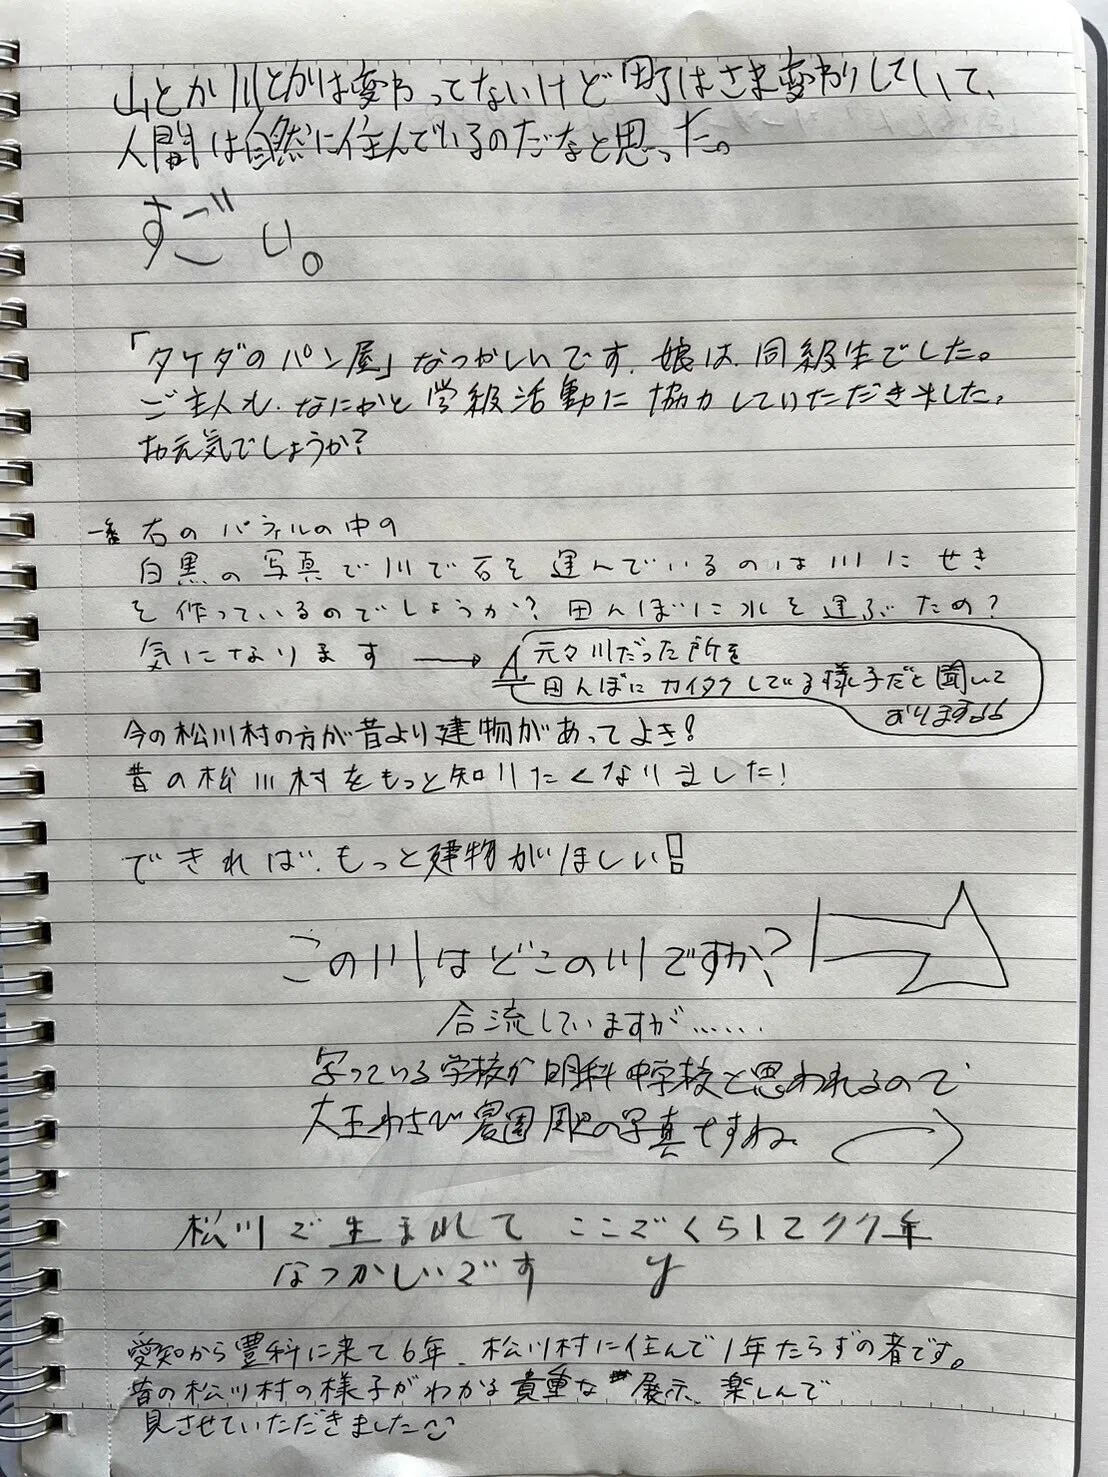 山とか川とかは変わってないけど町はさま変わりしていて、
人間は自然に住んでいるのだなと思った。
すごい。
「タケダのパン屋」なつかしいです。娘は、同級生でした。
ご主人も、なにかと学級活動に協力していただきました。
お元気でしょうか?
一番右のパネルの中の
白黒の写真で川で石を運んでいるのは川にせき
を作っているのでしょうか? 田んぼに水を運ぶため?
気になります → A.
元々川だった所を
田んぼにカイタクしている様子だと聞いて
おります
今の松川村の方が昔より建物があってよき!
昔の松川村をもっと知りたくなりました!
できれば、もっと建物がほしい!
この川はどこの川ですか?
合流していますが……
写っている学校が明科中学校と思われるので
大王わさび農園周辺の写真ですね。
松川で生まれて ここでくらして77年
なつかしいです y
愛知から豊科に来て6年、松川村に住んで1年たらずの者です。
昔の松川村の様子がわかる貴重な 展示、楽しんで
見させていただきました